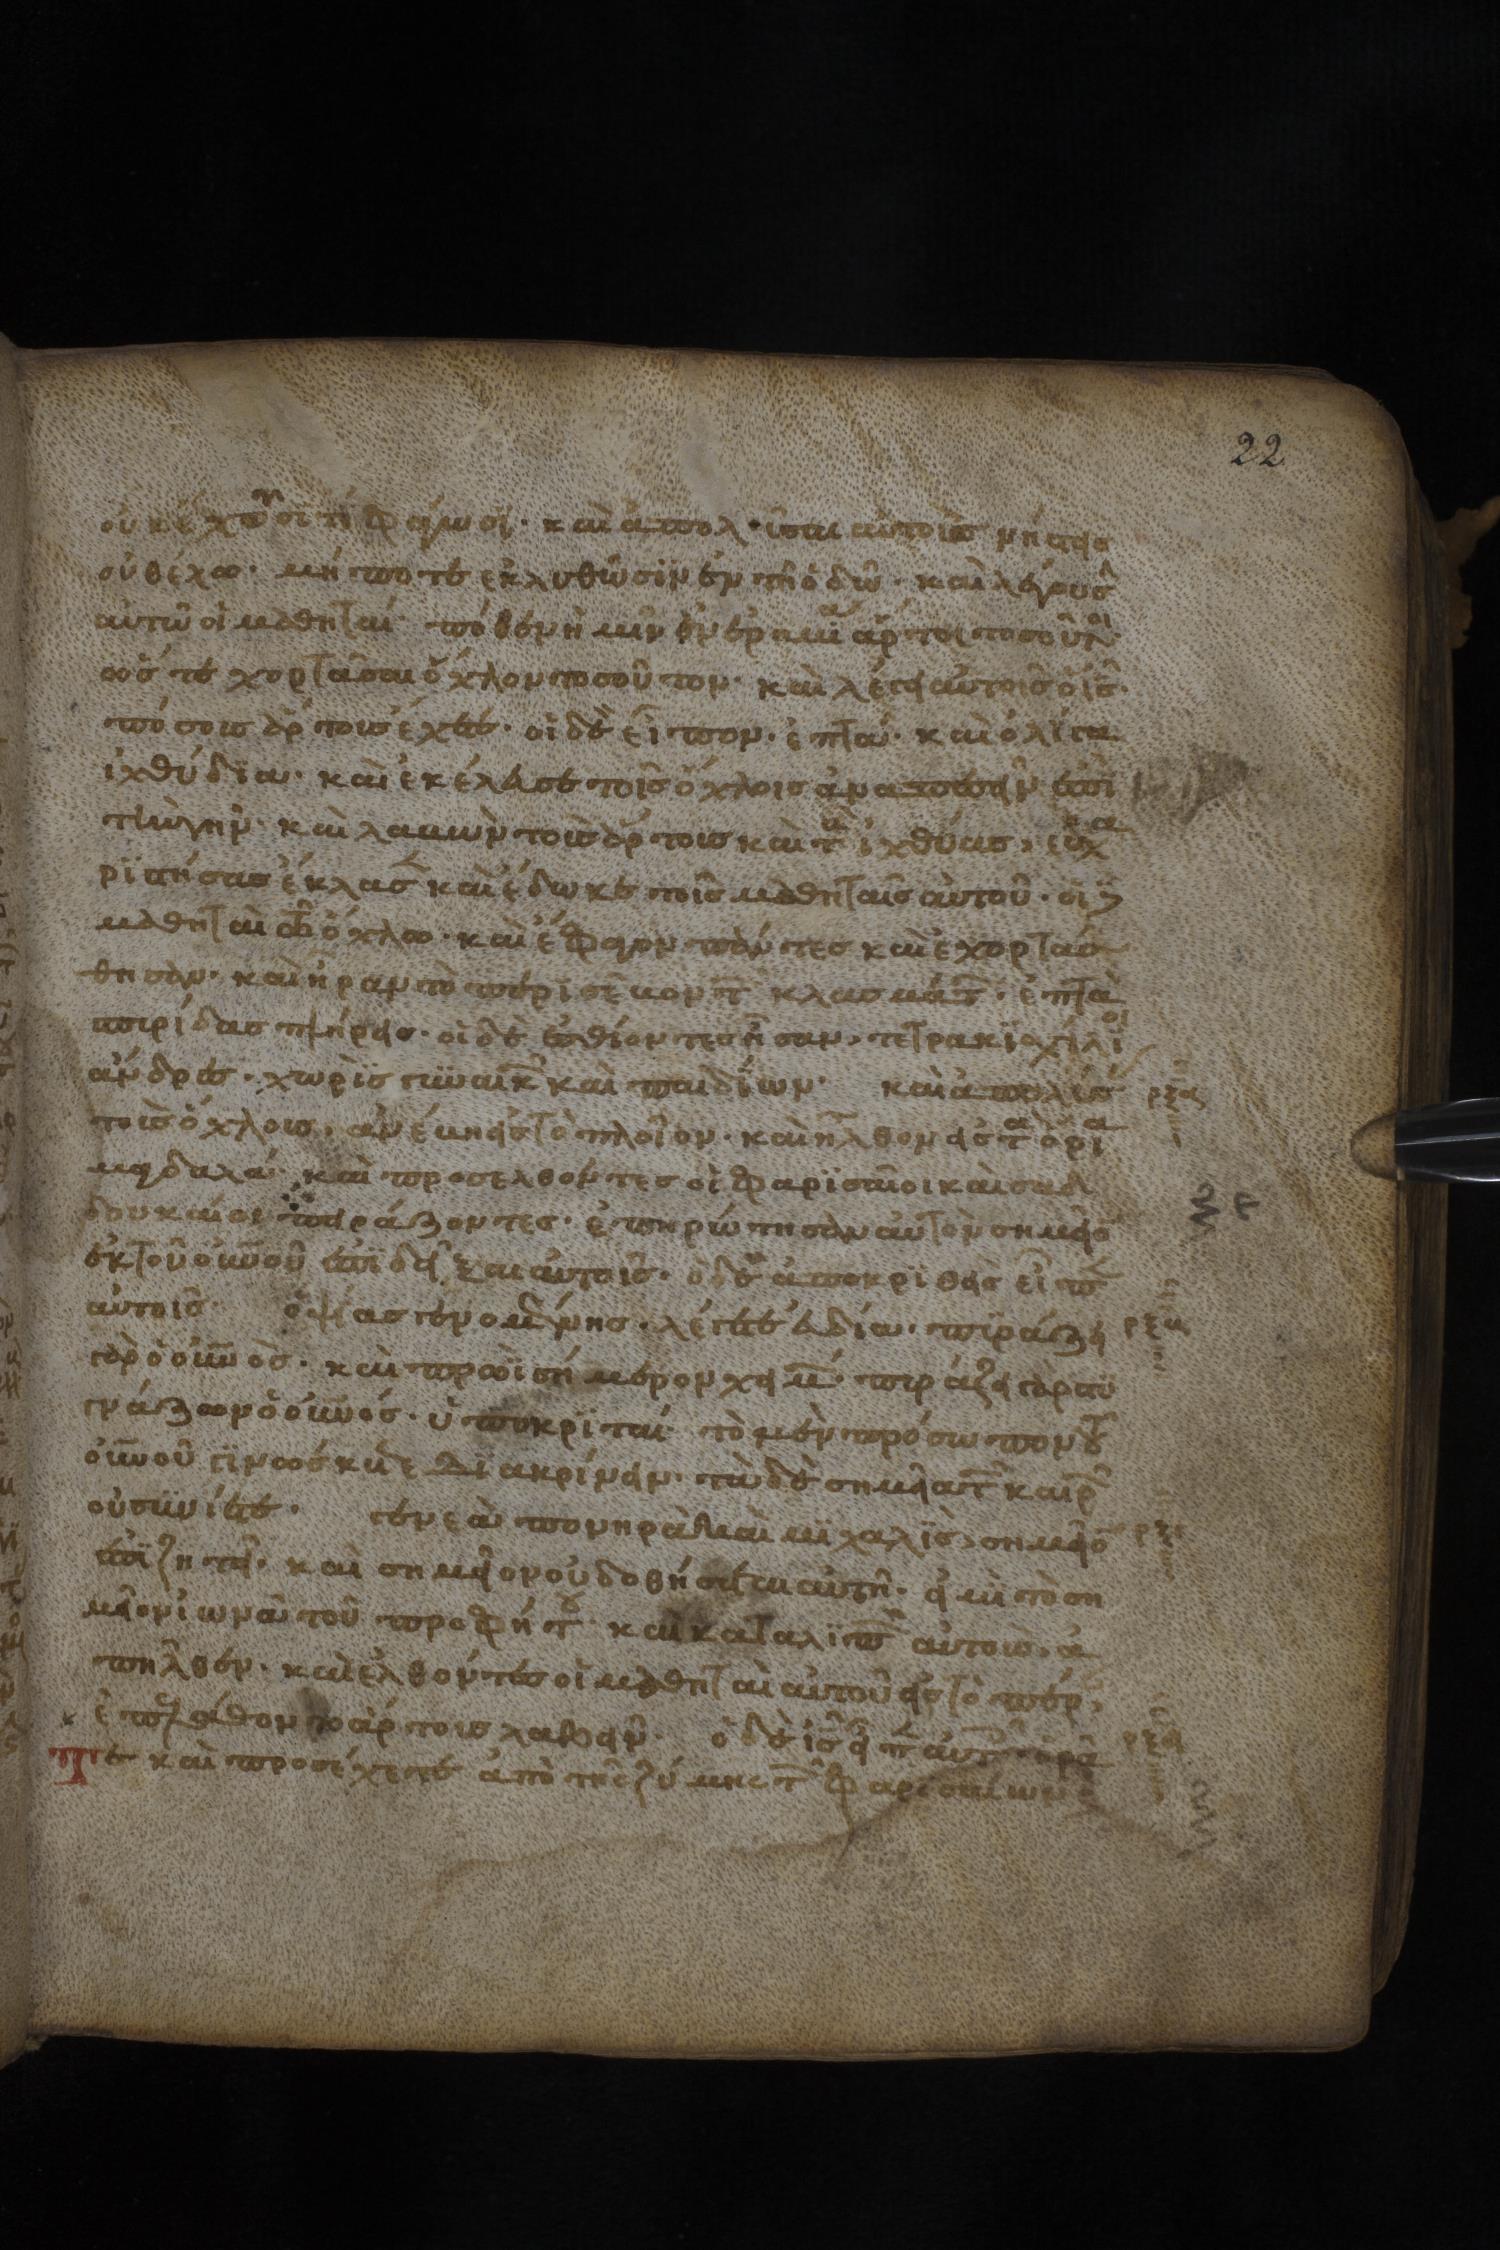 22
οὐκ ἔχουσι τί φάγωσι· καὶ ἀπολῦσαι αὐτοὺς νήστεις
οὐ θέλω· μήποτε ἐκλυθῶσιν ἐν τῆ ὁδῶ· καὶ λέγουσ
αὐτῶ οἱ μαθηταί· πόθεν ἡμῖν ἐν ἐρημία ἄρτοι τοσοῦτοι
ὥστε χορτάσαι ὄχλον τοσοῦτον· καὶ λέγει αὐτοῖς ὁ ις·
πόσους ἄρτους ἔχετε· οἱ δὲ εἶπον· ἑπτά· καὶ ὀλίγα
ἰχθύδϊα· καὶ ἐκέλευσε τοῖς ὄχλοις ἀναπεσεῖν ἐπὶ
τὴν γῆν· καὶ λαβὼν τοὺς ἄρτους καὶ τὰ ἰχθύας, εὐχα
ρϊστήσας ἔκλασε καὶ ἔδωκε τοῖς μαθηταῖς αὐτοῦ· οἱ δὲ
μαθηταὶ τῶ ὄχλω· καὶ ἔφαγον πάντες καὶ ἐχορτάσ
θησαν· καὶ ἦραν τὸ περισσεῦον τῶν κλασμάτων· ἑπτὰ
σπυρίδας πλήρεις· οἱ δὲ ἐσθίοντες ἦσαν, τετρακισχίλϊοι
ἄνδρες· χωρὶς γυναικῶν καὶ παιδίων· καὶ ἀπολύσ
τοὺς ὄχλους, ἀνέβη εἰς τὸ πλοῖον· καὶ ἦλθον εἰς τὰ ὅρια
μαγδαλά· καὶ προσελθόντες οἱ φαρϊσαῖοι καὶ σαδ
δουκαῖοι πειράζοντες· ἐπηρώτησαν αὐτὸν σημεῖο
ἐκ τοῦ οὐνοῦ ἐπϊδεῖξαι αὐτοῖς· ὁ δὲ ἀποκρϊθεὶς εἶπε
αὐτοῖς· ὀψίας γενομένης· λέγετε εὐδία· πυρράζει
γὰρ ὁ οὐνός· καὶ πρωῒ σήμερον χειμών· πυρράζει γὰρ στυ
γνάζων ὁ οὐνός· ὑποκρϊταί· τὸ μὲν πρόσωπον τοῦ
οὐνοῦ γϊνώσκετε δϊακρίνειν· τὰ δὲ σημεῖα τῶν καιρῶν
οὐ συνίετε· γενεὰ πονηρὰ καὶ μοιχαλὶς, σημεῖο
ἐπϊζητεῖ· καὶ σημεῖον οὐ δοθήσεται αὐτῆ· εἰ μὴ τὸ ση
μεῖον ἰωνᾶ τοῦ προφήτου· καὶ καταλϊπὼν αὐτοὺς, ἀ
πῆλθεν· καὶ ἐλθόντες οἱ μαθηταὶ αὐτοῦ εἰς τὸ πέραν,
ἐπελάθοντο ἄρτους λαβεῖν· ὁ δὲ ις εἶπεν αὐτοῖς· ὁρᾶ
Τε καὶ προσέχετε ἀπὸ τῆς ζύμης τῶν φαρισαίων